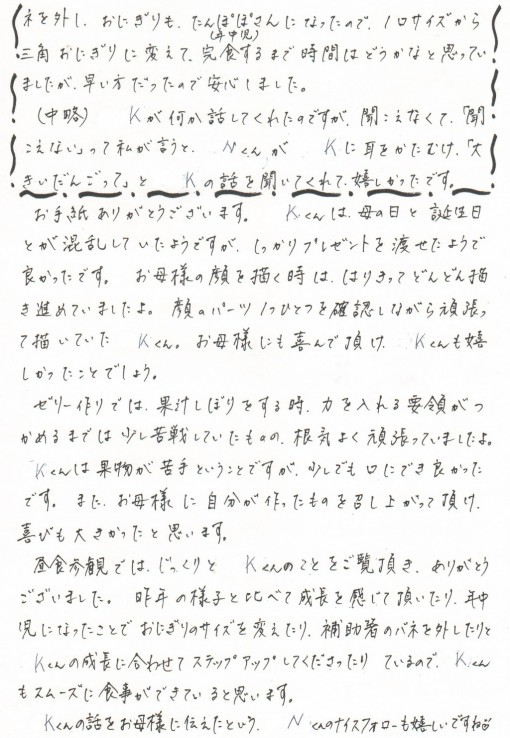 ネを外し、おにぎりも、たんぽぽさんになったので、1口サイズから
(年中児)
三角おにぎりに変えて、完食するまで時間はどうかなと思ってい
ましたが、早い方だったので安心しました。
(中略) Kが何か話してくれたのですが、聞こえなくて、「聞
こえない」って私が言うと、NくんがKに耳をかたむけ、「大
きいだんごって」とKの話を聞いてくれて、嬉しかったです。
お手紙ありがとうございます。Kくんは、母の日と誕生日
とが混乱していたようですが、しっかりプレゼントを渡せたようで
良かったです。お母様の顔を描く時は、はりきってどんどん描
き進めていましたよ。顔のパーツ1つひとつを確認しながら頑張っ
て描いていたKくん。お母様にも喜んで頂け、Kくんも嬉
しかったことでしょう。
ゼリー作りでは、果汁しぼりをする時、力を入れる要領がつ
かめるまでは少し苦戦していたものの、根気よく頑張っていましたよ。
Kくんは果物が苦手ということですが、少しでも口にでき良かった
です。また、お母様に自分が作ったものを召し上がって頂け、
喜びも大きかったと思います。
昼食参観では、じっくりとKくんのことをご覧頂き、ありがとう
ございました。昨年の様子と比べて成長を感じて頂いたり、年中
児になったことでおにぎりのサイズを変えたり、補助箸のバネを外したりと
Kくんの成長に合わせてステップアップしてくださったりているので、Kくん
もスムーズに食事ができていると思います。
Kくんの話をお母様に伝えたという、Nくんのナイスフォローも嬉しいですね